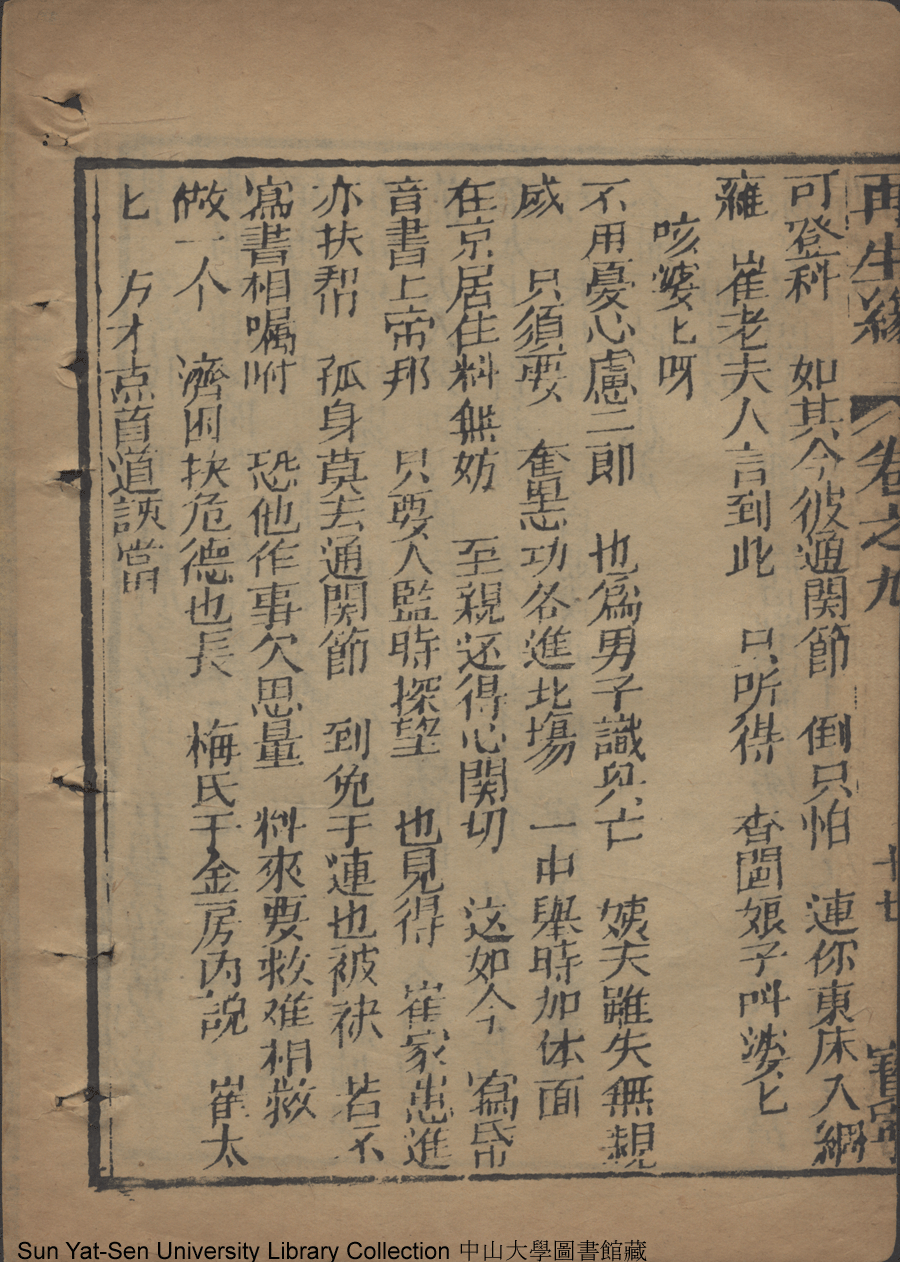 再生緣 卷之九 十七
可登科 如其今彼通関節 倒只怕 連你東床入網
羅 崔老夫人言到此 只听得 香閨娘子叫婆匕
咳婆匕呀
不用憂心慮二郎 也爲男子識兴亡 姨夫雖失無親
咸 只須要 奮志功名進北場 一中舉時加体面
在京居住料無妨 至親还得心関切 这如今 寫帋
音書上帝邦 只要人監時探望 也見得 崔家患進
亦扶帮 孤身莫去通関節 到免干連也被袂 若不
寫書相嘱咐 恐他作事欠思量 料來要救难相救
做一个 濟困扶危德也長 梅氏于金房内說 崔太
匕 方才点首道該當
Sun Yat-Sen University Library Collection 中山大學圖書館藏